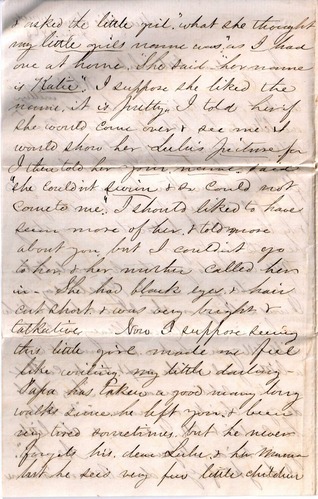 I asked the little girl, "what she thought
my little girls name was," as I had
one at home. She said "her name
is "Katie". I suppose she liked the
name, it is pretty. I told her if
she would come over & see me I
would show her Lulu's picture for
I then told her your name. Said
"she couldn't swim & so could not
come to me". I should liked to have
seen more of her, & told more
about you, but I couldn't go
to her, & her mother called her
in. She had black eyes, & hair
cut short, & was very bright &
talkative. Now I suppose seeing
this little girl made me feel
like writing my little darling.
Papa has taken a good many long
walks since he left you, & been
very tired sometimes, but he never
forgets his dear Lulu, & her Mama
but he sees very few little children